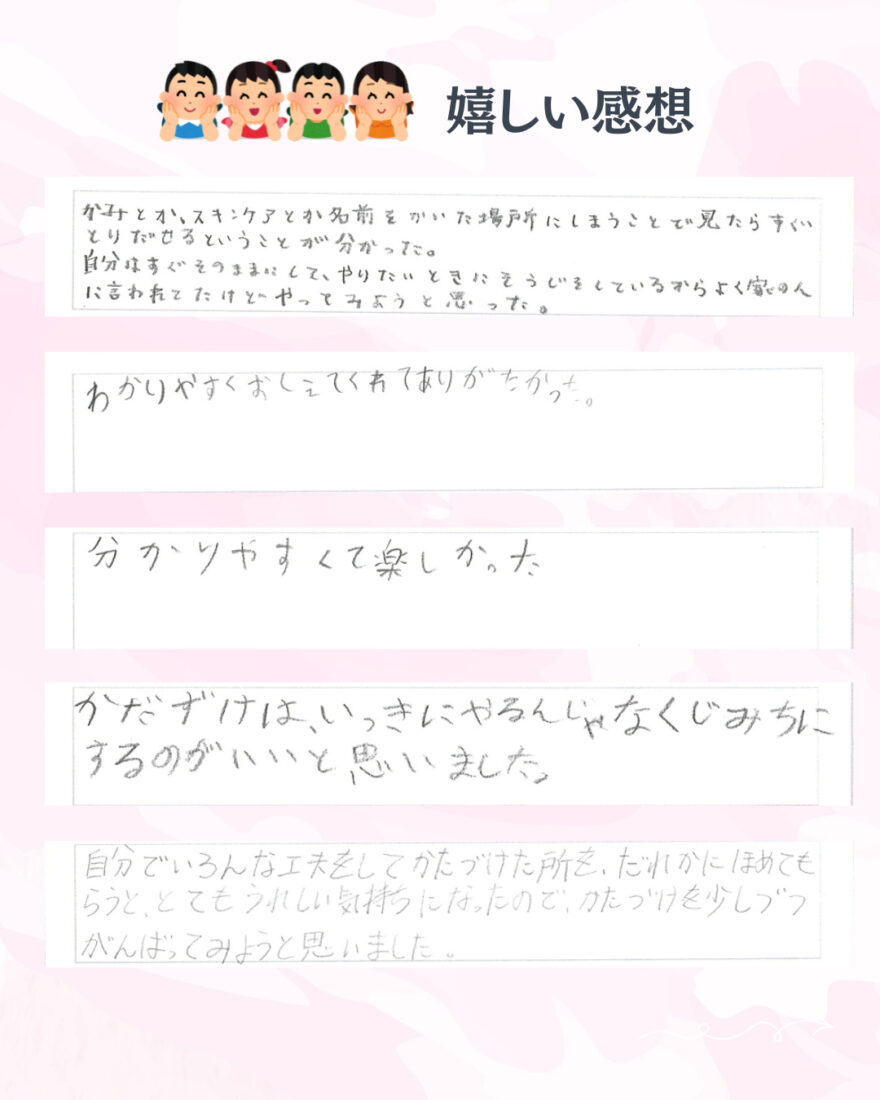 嬉しい感想
かみとか、スキンケアとか名前をかいた場所にしまうことで見たらすぐい
とりだせるということが分かった。
自分はすぐそのままにして、やりたいときにそうじをしているからよく家の人
に言われてたけどやってみようと思った。
わかりやすくおしえてくれてありがたかった。
分かりやすくて楽しかった
かだずけは、いっきにやるんじゃなくじみちに
するのがいいと思いました。
自分でいろんな工夫をしてかたづけた所を、だれかにほめても
らうと、とてもうれしい気持ちになったので、かたづけを少しづつ
がんばってみようと思いました。